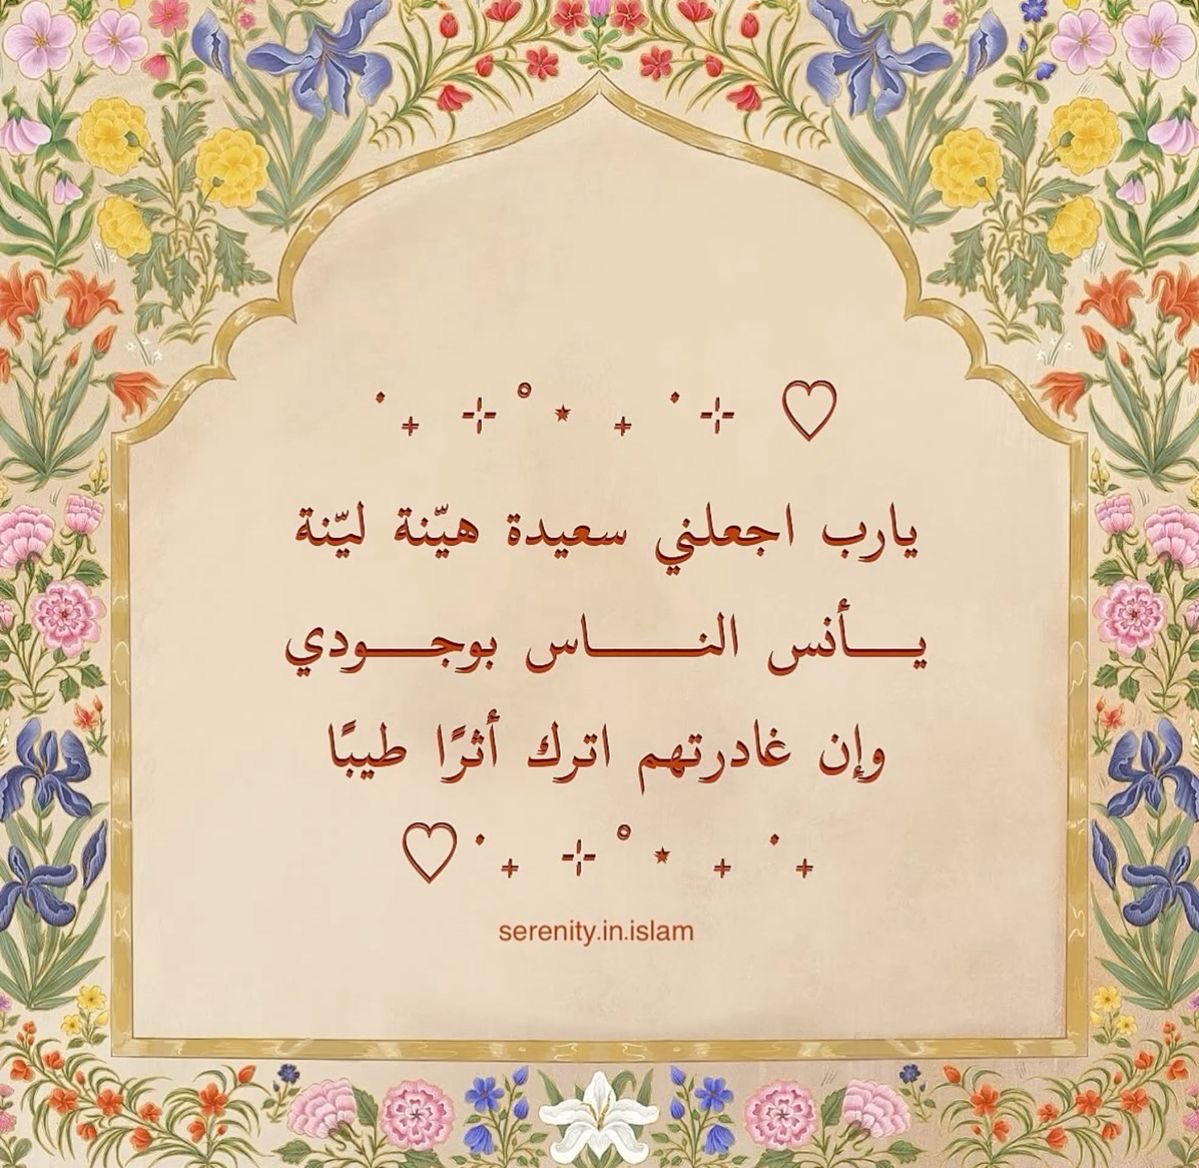 يارب اجعلني سعيدة هيّنة ليّنة
يـــأنس النـــــاس بوجـــودي
وإن غادرتهم اترك أثرًا طيبًا
serenity.in.islam